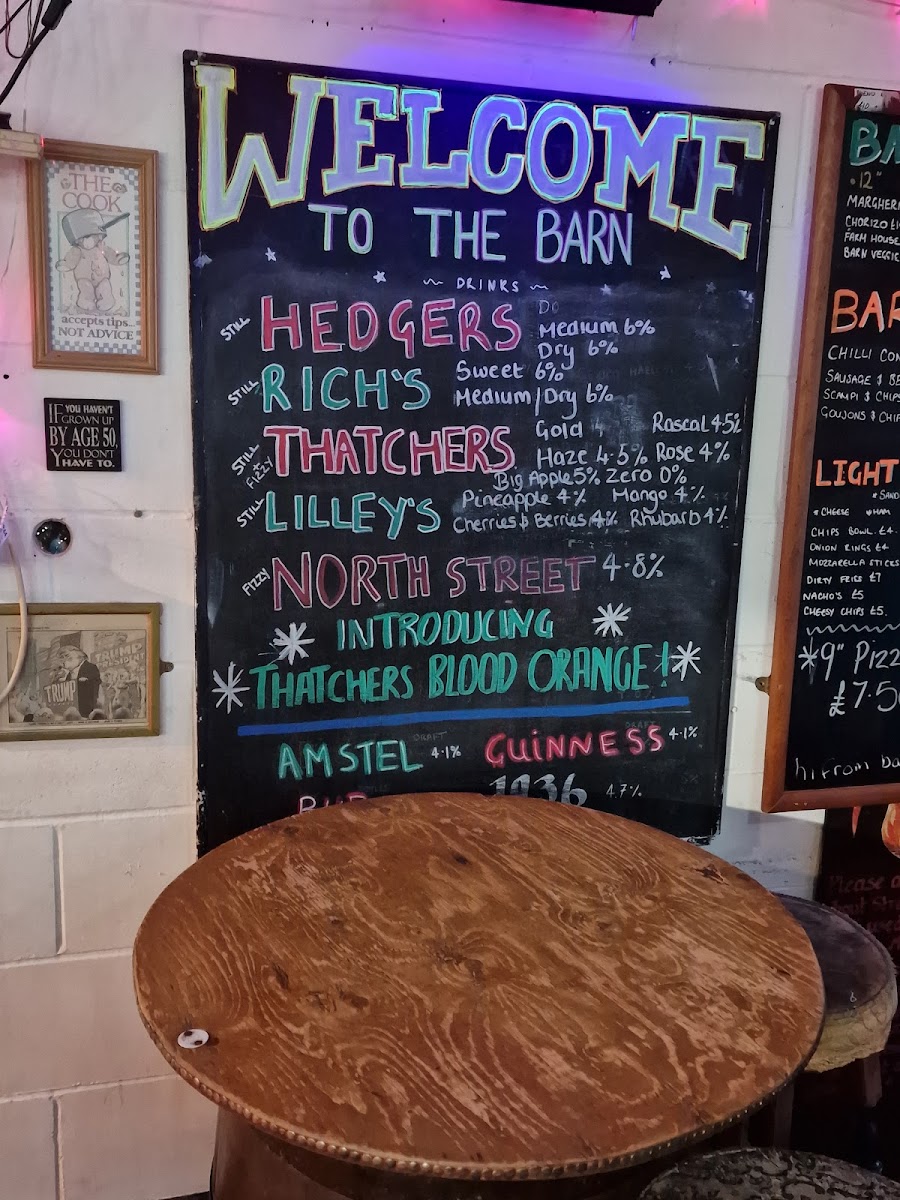 WELCOME
TO THE BARN
~ DRINKS ~
STILL HEDGERS Medium 6%
Dry 6%
STILL RICH'S Sweet 6%
Medium/Dry 6%
STILL & FIZZY THATCHERS Gold 4 Rascal 4.5%
Haze 4.5% Rose 4%
Big Apple 5% Zero 0%
STILL LILLEY'S Pineapple 4% Mango 4%
Cherries & Berries 4% Rhubarb 4%
FIZZY NORTH STREET 4.8%
INTRODUCING
THATCHERS BLOOD ORANGE!
DRAFT DRAFT
AMSTEL 4.1% GUINNESS 4.1%
1936 4.7%
THE
COOK
accepts tips...
NOT ADVICE
IF YOU HAVEN'T
GROWN UP
BY AGE 50,
YOU DON'T
HAVE TO.
TRUMP
TRUMP
BA
12"
MARGHER
CHORIZO
FARM HOUSE
BARN VEGGIE
BAR
CHILLI CON
SAUSAGE & BE
SCAMPI & CHIPS
GOUJONS & CHIP
LIGHT
* SAND
* CHEESE * HAM
CHIPS BOWL £4.
ONION RINGS £4
MOZZARELLA STICKS
DIRTY FRIES £7
NACHO'S £5
CHEESY CHIPS £5.
*9" PIZZ
£7.50
hi From
Please